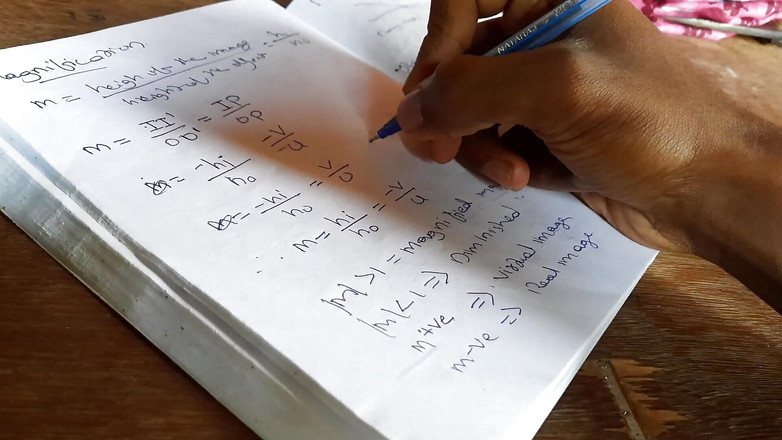 agnification
m = height of the image / height of the object = hi / ho
m = II' / OO' = IP / OP
= -hi / ho   -v / -u
= -hi / ho = v / u
∴ m = hi / ho = -v / u
|m| > 1 = magnified
|m| < 1 => Diminished
m +ve => virtual image
m -ve => Real image
NATARAJ